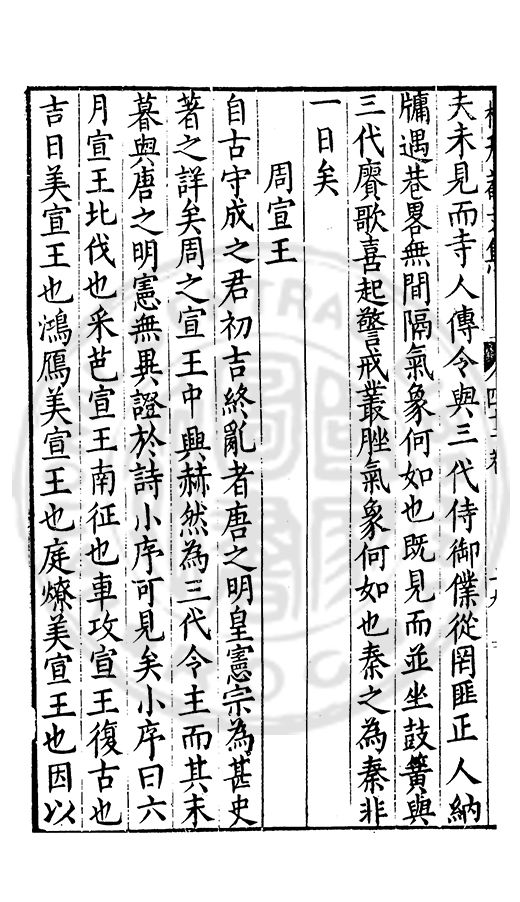 夫未見而寺人傳令與三代侍御僕從罔匪正人納
牖遇巷畧無間隔氣象何如也既見而並坐鼓簧與
三代賡歌喜起警戒叢脞氣象何如也秦之為秦非
一日矣
周宣王
自古守成之君初吉終亂者唐之明皇憲宗為甚史
著之詳矣周之宣王中興赫然為三代令主而其末
暮與唐之明憲無異證於詩小序可見矣小序曰六
月宣王北伐也采芑宣王南征也車攻宣王復古也
吉日美宣王也鴻鴈美宣王也庭燎美宣王也因以